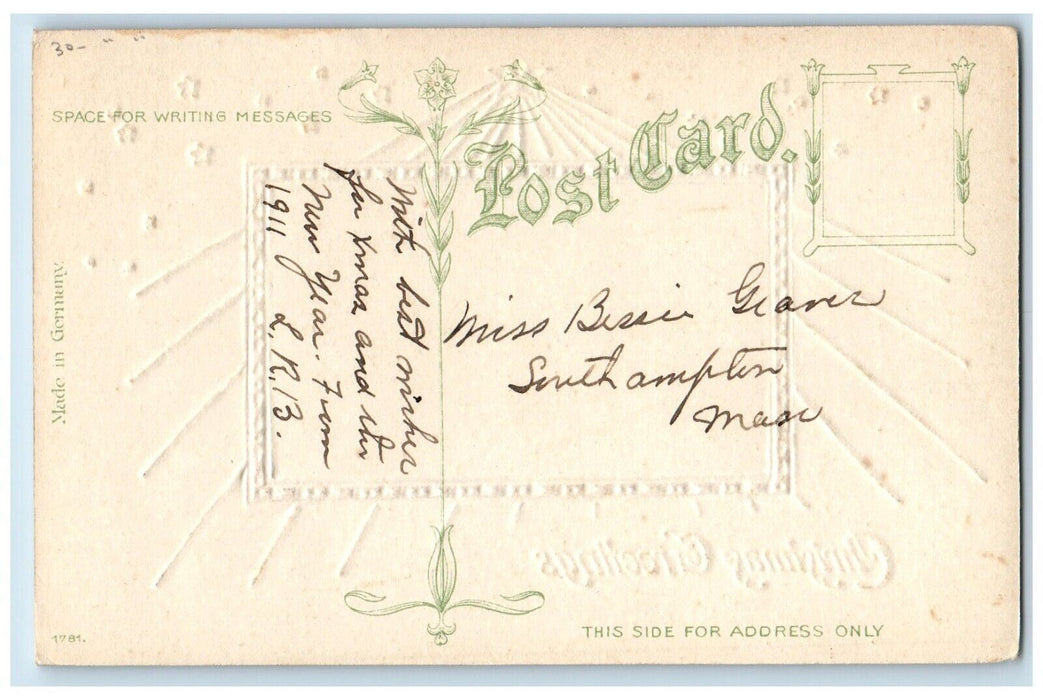 30- " "
SPACE FOR WRITING MESSAGES
Post Card.
With best wishes
for Xmas and the
New Year. From
1911 L. R. B.
Miss Bessie Graves
Southampton
Mass
Made in Germany.
Christmas Greetings
1781.
THIS SIDE FOR ADDRESS ONLY